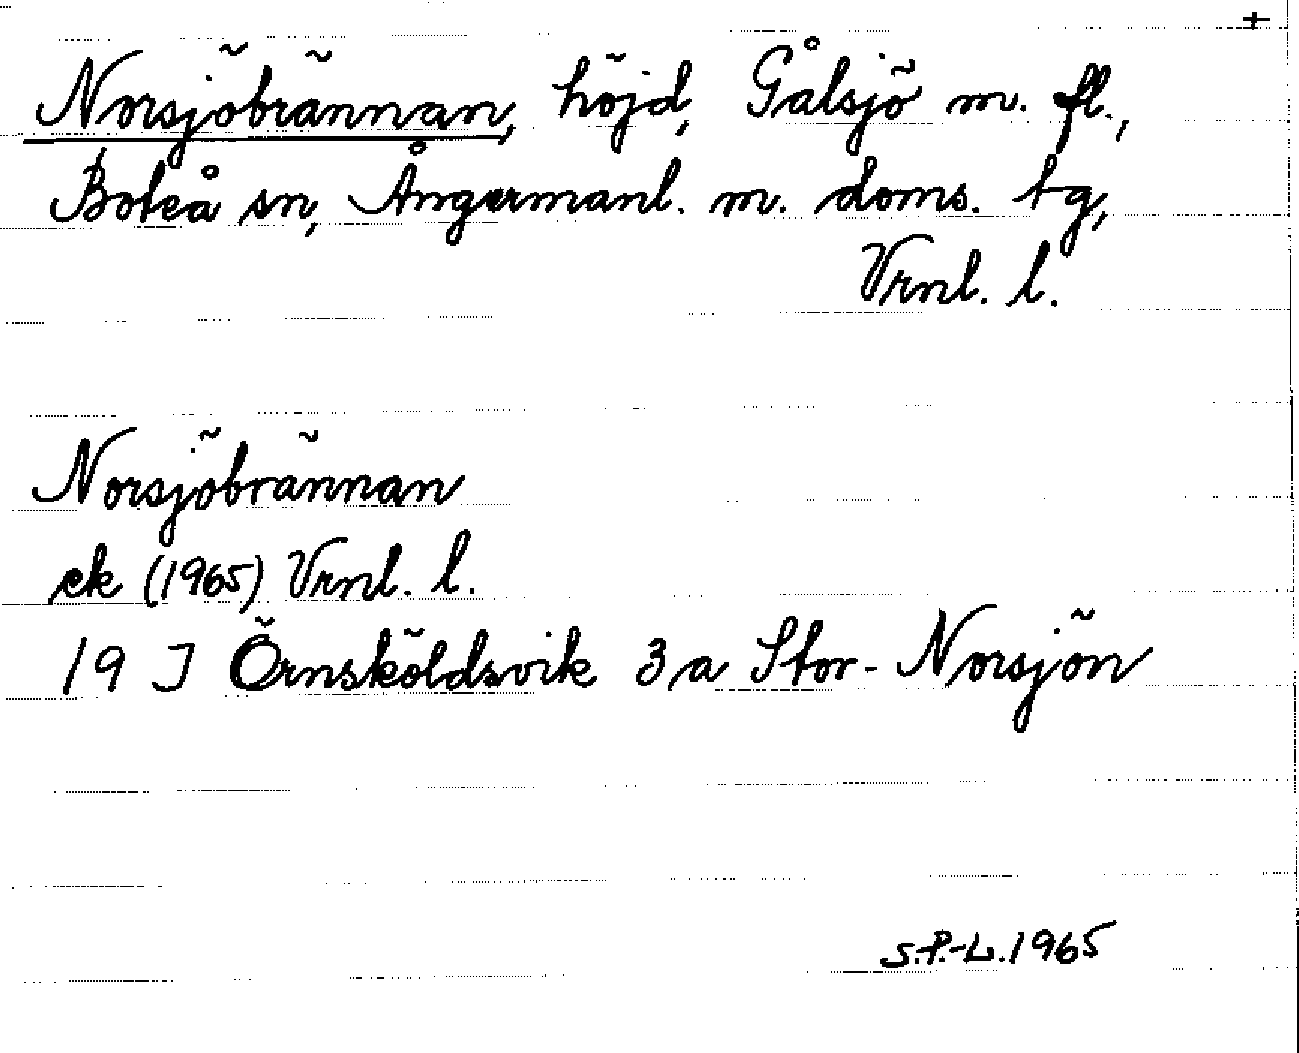 +
Norsjöbrännan, höjd, Gålsjö m. fl.,
Boteå sn, Ångermanl. m. doms. tg,
Vrnl. l.
Norsjöbrännan
ek (1965) Vrnl. l.
19 J Örnsköldsvik 3 a Stor-Norsjön
S.P.-L. 1965